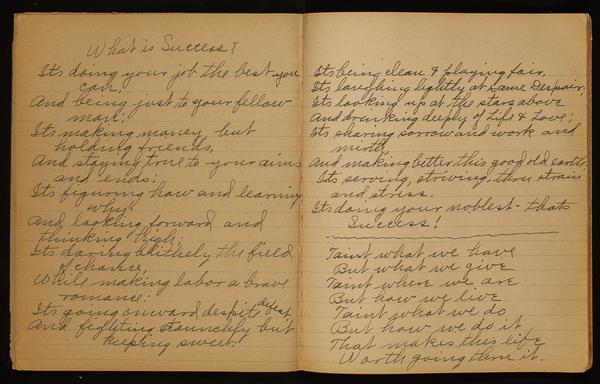 What is Success?
Its doing your job the best you
can,
And being just to your fellow
man;
Its making money, but
holding friends,
And staying true to your aims
and ends;
Its figuring how and learning
why;
And looking forward and
thinking high;
Its daring blithely the field
of chance,
While making labor a brave
romance;
Its going onward despite defeat,
And fighting staunchly but
keeping sweet.
Its being clean & playing fair,
Its laughing lightly at Dame Despair;
Its looking up at the stars above
And drinking deeply of Life & Love;
Its sharing sorrow and work and
mirth,
And making better this good old earth
Its serving, striving, thru strain
and stress.
Its doing your noblest - thats
Success!
Taint what we have
But what we give
Taint where we are
But how we live
Taint what we do
But how we do it
That makes this life
Worth going thru it.